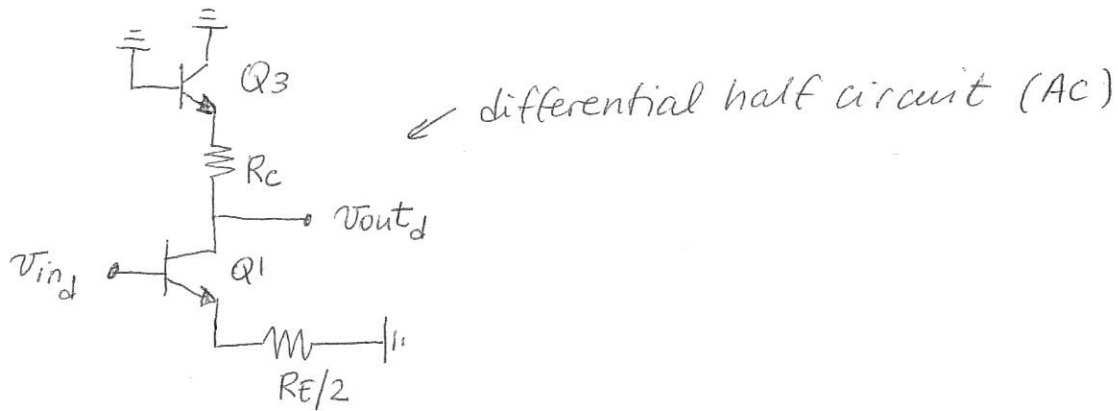 Q3
differential half circuit (AC)
Rc
Voutd
Vind
Q1
RE/2